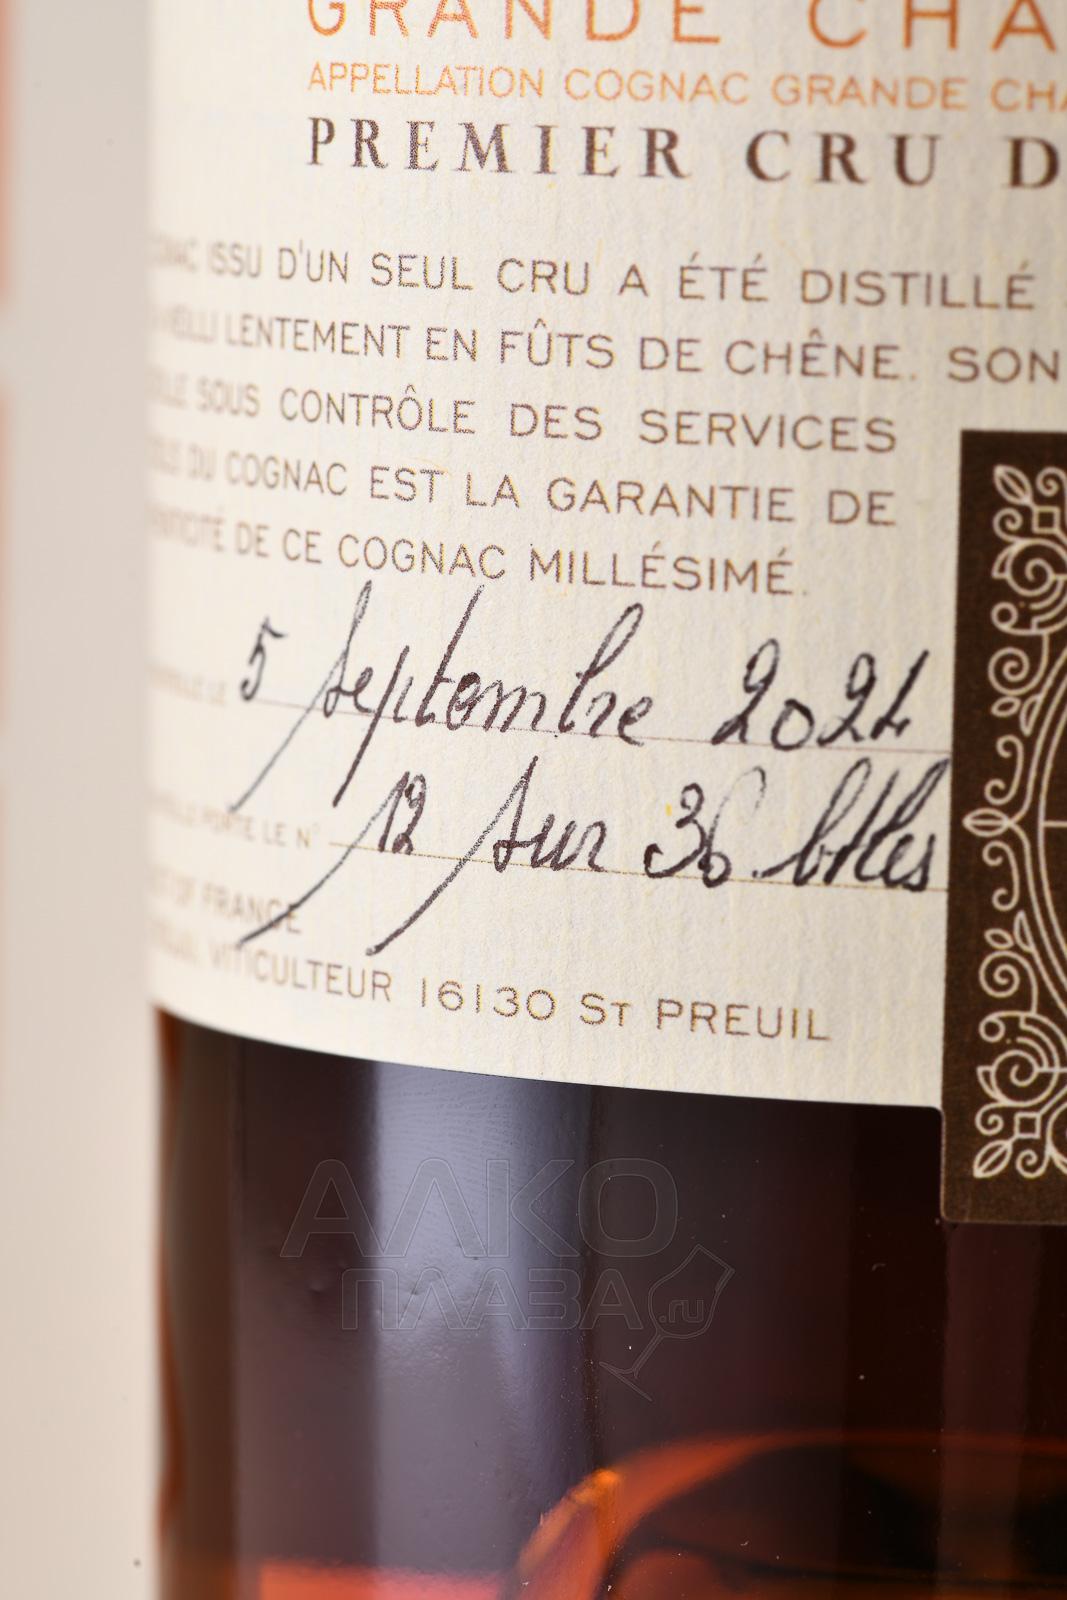 GRANDE CHA
APPELLATION COGNAC GRANDE CHA
PREMIER CRU D
ISSU D'UN SEUL CRU A ÉTÉ DISTILLÉ
LENTEMENT EN FÛTS DE CHÊNE. SON
SOUS CONTRÔLE DES SERVICES
DU COGNAC EST LA GARANTIE DE
DE CE COGNAC MILLÉSIMÉ.
LE 5 Septembre 2021
PORTE LE N° 12 sur 36 btles
OF FRANCE
VITICULTEUR 16130 ST PREUIL
АЛКО
ПЛАЗА.ru